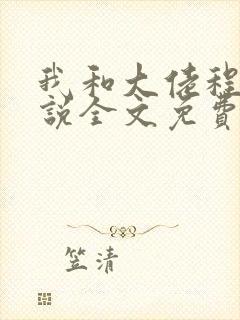 我和大佬程
说全文免费
笠清